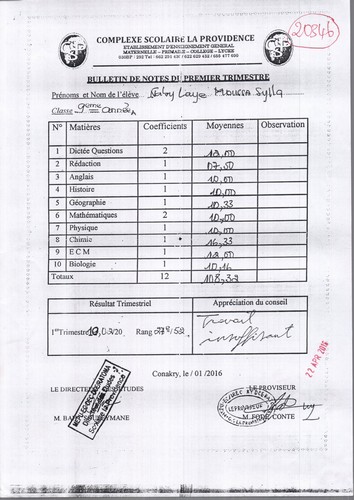 20846
COMPLEXE SCOLAIRE LA PROVIDENCE
ETABLISSEMENT D'ENSEIGNEMENT GENERAL
MATERNELLE - PRIMAIRE - COLLEGE - LYCEE
BULLETIN DE NOTES DU PREMIER TRIMESTRE
Prénoms et Nom de l'élève Laye Moussa Sylla
Classe 9ème Année A
N° Matières Coefficients Moyennes Observation
1 Dictée Questions 2
2 Rédaction 1 07,50
3 Anglais 1 10,00
4 Histoire 1 10,00
5 Géographie 1 10,33
6 Mathématiques 2 10,00
7 Physique 1 10,00
8 Chimie 1 16,33
9 E C M 1
10 Biologie 1 10,16
Totaux 12
Résultat Trimestriel Appréciation du conseil
1er Trimestre /20 Rang
Travail
insuffisant
Conakry, le / 01 /2016
27 APR 2016
LE DIRECTEUR ETUDES LE PROVISEUR
LE PROVISEUR
M. M. FODE CONTE